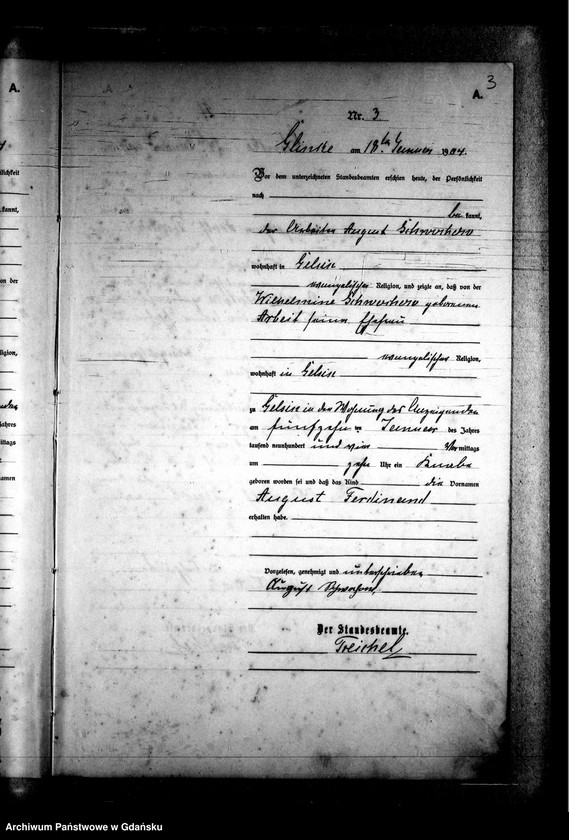 A.
3
A.
Nr. 3
am 18ten Januar 1904.
Vor dem unterzeichneten Standesbeamten erschien heute, der Persönlichkeit
nach
be kannt,
der Arbeiter August
wohnhaft in
evangelischer Religion, und zeigte an, daß von der
Wilhelmine geborenen
Arbeit seiner Ehefrau
evangelischer Religion,
wohnhaft in
zu in der Wohnung des Anzeigenden
am fünfzehnten Januar des Jahres
tausend neunhundert und vier Vormittags
um zehn Uhr ein Knabe
geboren worden sei und daß das Kind die Vornamen
August Ferdinand
erhalten habe.
Vorgelesen, genehmigt und unterschrieben
August
Der Standesbeamte.
Treichel
Archiwum Państwowe w Gdańsku